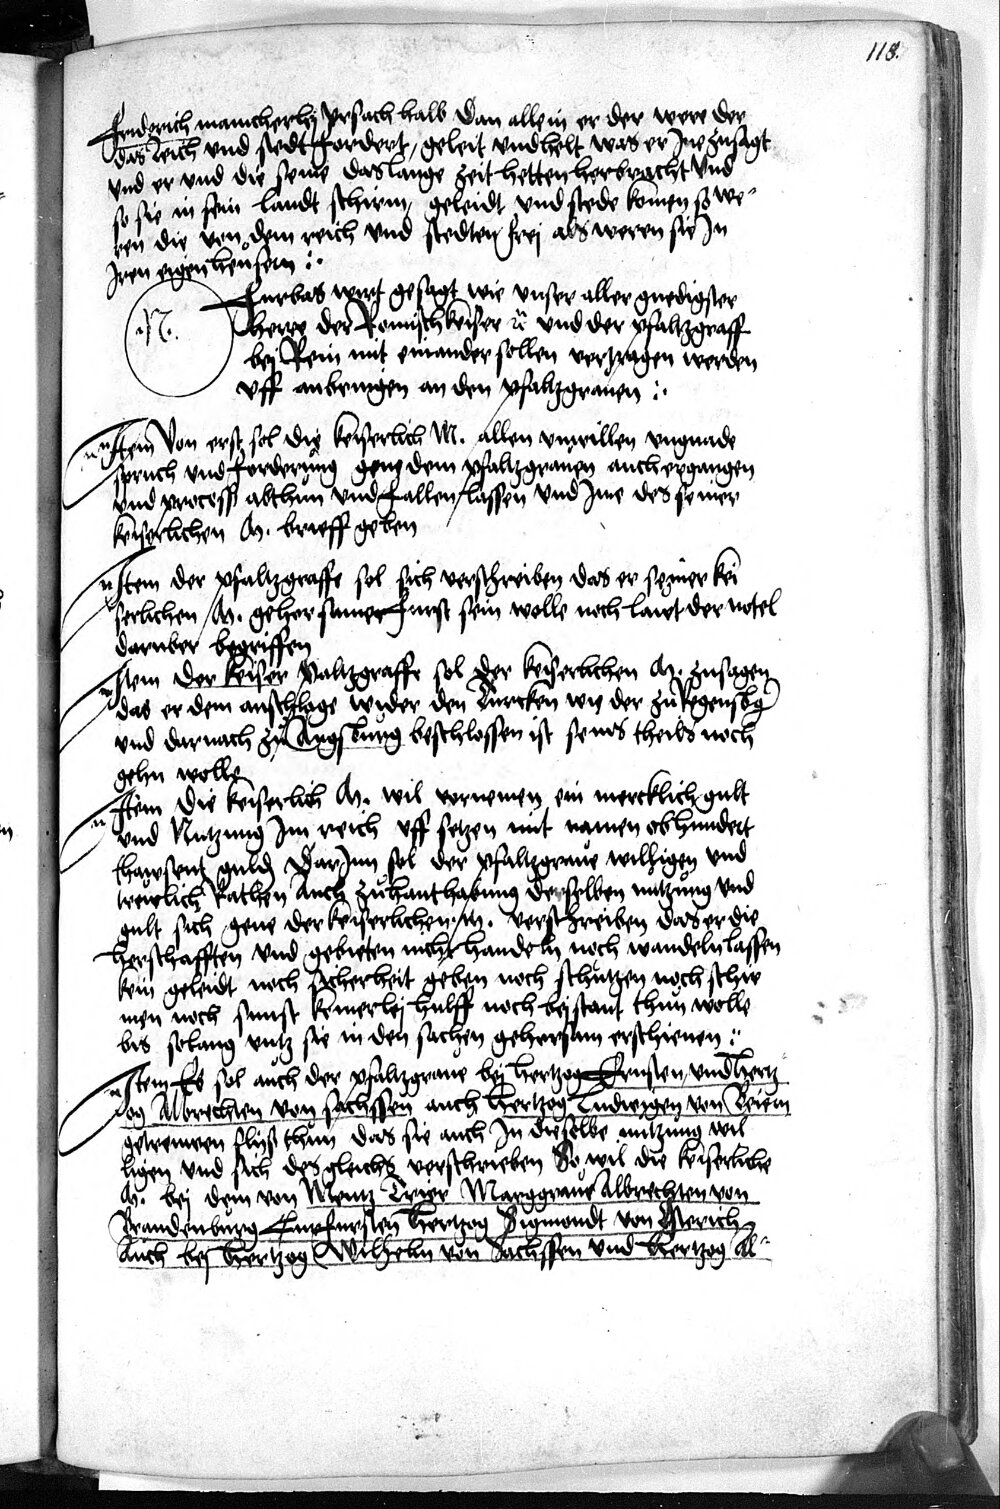 118.
Friderich mancherlej vrsach halb Dan allein er der were der
das Reich vnd stedt fordert, geleit vnd helt was er Ine zusagt
vnd er vnd die seine das lange zeit hetten herbracht vnd
so sie in sein landt schirm, geleidt vnd stede komen so we-
ren die von dem reich vnd stedten frej als weren sie In
Iren eigen heusern :.
N.
Furbas wirt gesagt wie vnser aller gnedigster
Herre der Romisch keiser vnd der pfaltzgraff
bej Rein mit einander sollen vertragen werden
vff anbringen an den pfaltzgrauen :.
Item Von erst sol die keiserlich M. allen vnwillen vngnade
spruch vnd forderung gene dem pfaltzgrauen auch ergangen
vnd process abthun vnd fallen lassen vnd Ime des seiner
keiserlichen M. brieff geben
Item der pfaltzgraffe sol sich verschreiben das er seiner kei
serlichen M. gehorsamer furst sein wolle noch laut der notel
daruber begriffen
Item der keiser Paltzgraffe sol der keiserlichen M. zusagen
das er dem anschlage wider den Turcken wie der zu Regensbg
vnd darnach zu Augsburg beschlossen ist seins theils noch
gehn wolle
Item Die keiserlich M. wil vornemen ein mercklich gult
vnd Nutzung Im reich vff setzen mit namen ob hundert
thawsent guld Dar Inn sol der pfaltzgraue willigen vnd
trewlich Rathen Auch zu hanthabung derselben nutzung vnd
gult sich gene der keiserlichen M. verschreiben das er die
herschafften vnd gebieten nicht handeln noch wandeln lassen
kein geleidt noch sicherheit geben noch schutzen noch schir
men noch sunst keinerlej hulff noch bejstant thun wolle
bis solang vntz sie in den sachen gehorsam erschienen :.
Item Es sol auch der pfaltzgraue bej hertzog Ernsten vnd hertz
og Albrechten von sachssen auch hertzog Ludwigen von Beiern
getrewen fliss thun das sie auch In dieselbe nutzung wil
ligen vnd sich des gleichs verschrieben So wil die keiserliche
M. bej dem von Mentz Trier Marggraue Albrechten von
Brandenburg Curfursten hertzog Sigmondt von Osterich
Auch bej hertzog Wilhelm von Sachssen vnd hertzog Al-